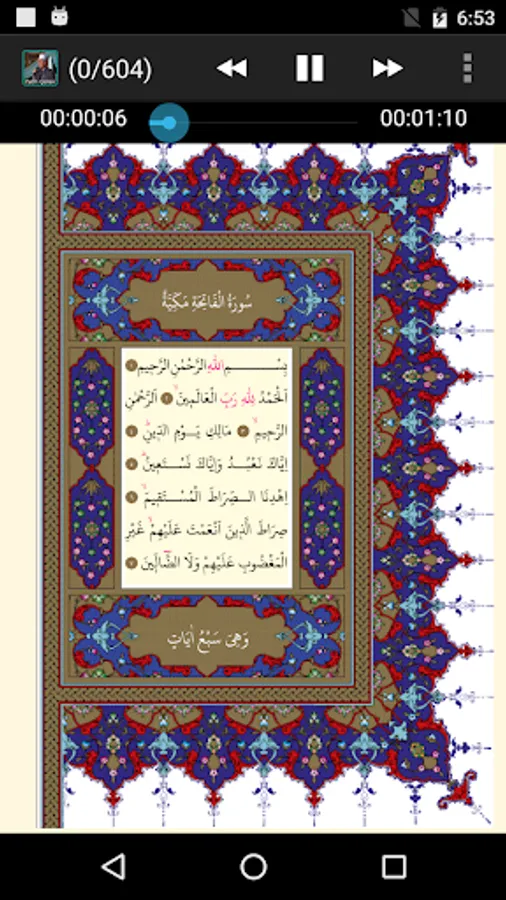 6:53
(0/604)
00:00:06
00:01:10
سُورَةُ الْفَاتِحَةِ مَكِّيَّةٌ
بِسْــــــــمِ اللّٰهِ الرَّحْمٰنِ الرَّحِيمِ ١
اَلْحَمْدُ لِلّٰهِ رَبِّ الْعَالَمِينَۙ ٢ اَلرَّحْمٰنِ
الرَّحِيمِۙ ٣ مَالِكِ يَوْمِ الدِّينِۜ ٤
اِيَّاكَ نَعْبُدُ وَاِيَّاكَ نَسْتَعِينُۜ ٥
اِهْدِنَا الصِّرَاطَ الْمُسْتَقِيمَۙ ٦
صِرَاطَ الَّذِينَ اَنْعَمْتَ عَلَيْهِمْۙ غَيْرِ
الْمَغْضُوبِ عَلَيْهِمْ وَلَا الضَّٓالِّينَ ٧
وَهِىَ سَبْعُ اٰيَاتٍ